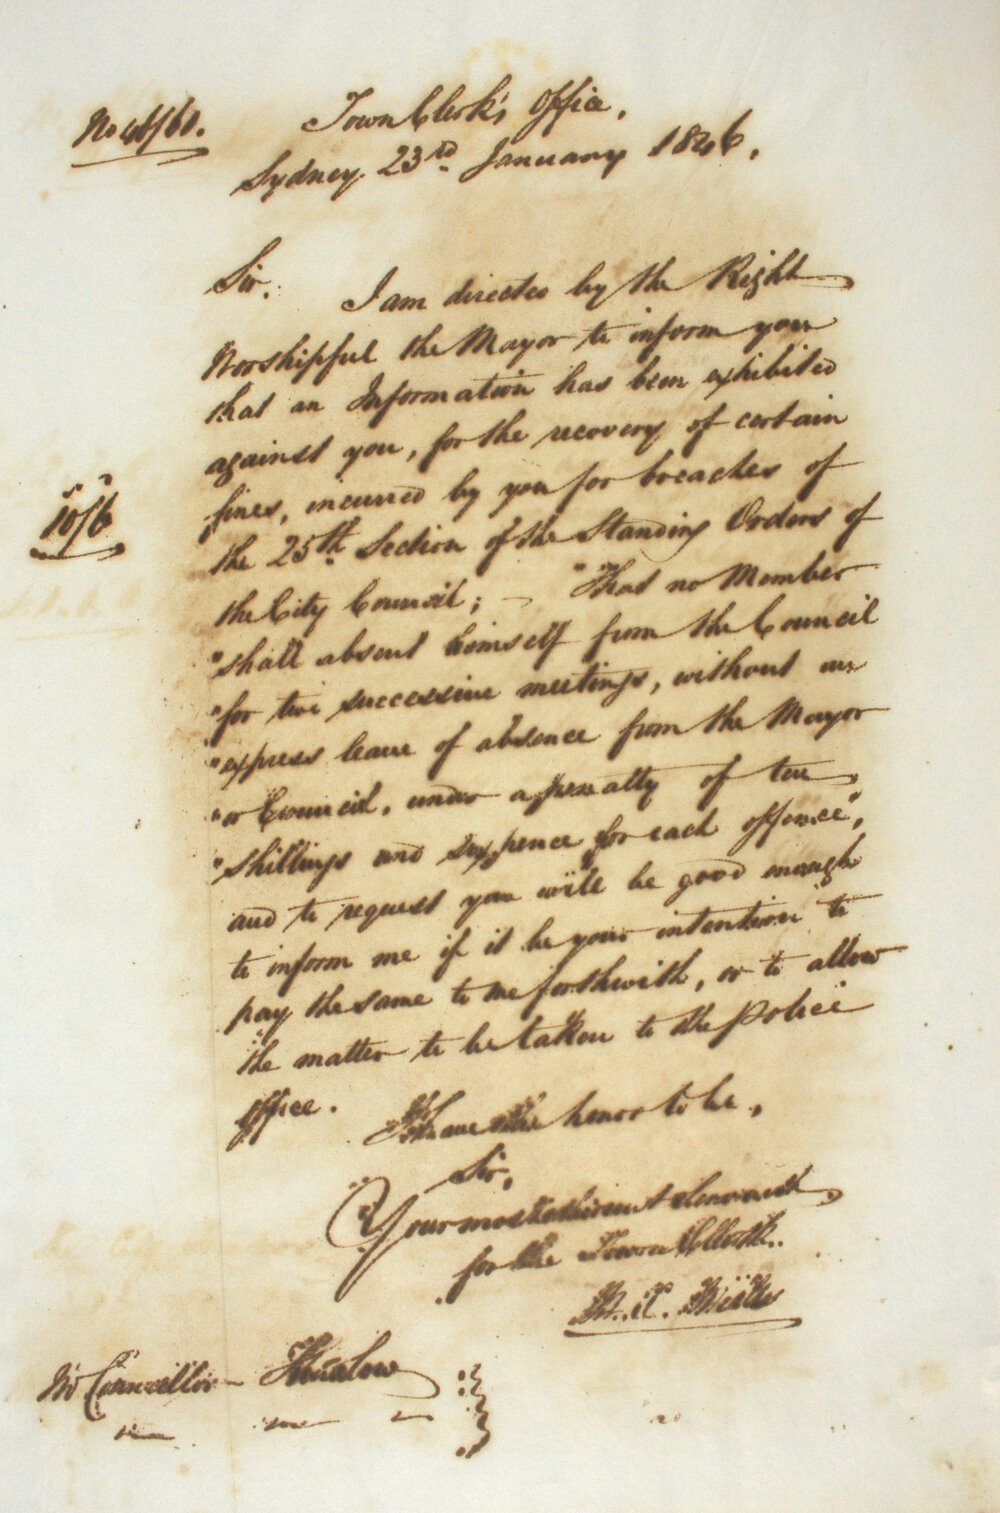 Town Clerk's Office,
Sydney 23rd January 1846.
Sir. I am directed by the Right
Worshipful the Mayor to inform you
that an Information has been exhibited
against you, for the recovery of certain
fines, incurred by you for breaches of
10/6
the 25th Section of the Standing Orders of
the City Council; – "That no Member
"shall absent himself from the Council
"for two successive meetings, without an
"express leave of absence from the Mayor
"or Council, under a penalty of ten
"shillings and sixpence for each offence",
and to request you will be good enough
to inform me if it be your intention to
pay the same to me forthwith, or to allow
the matter to be taken to the Police
Office.
I have the honor to be,
Sir,
Your most obedient Servant
for the Town Clerk.
Mr Councillor Thurlow